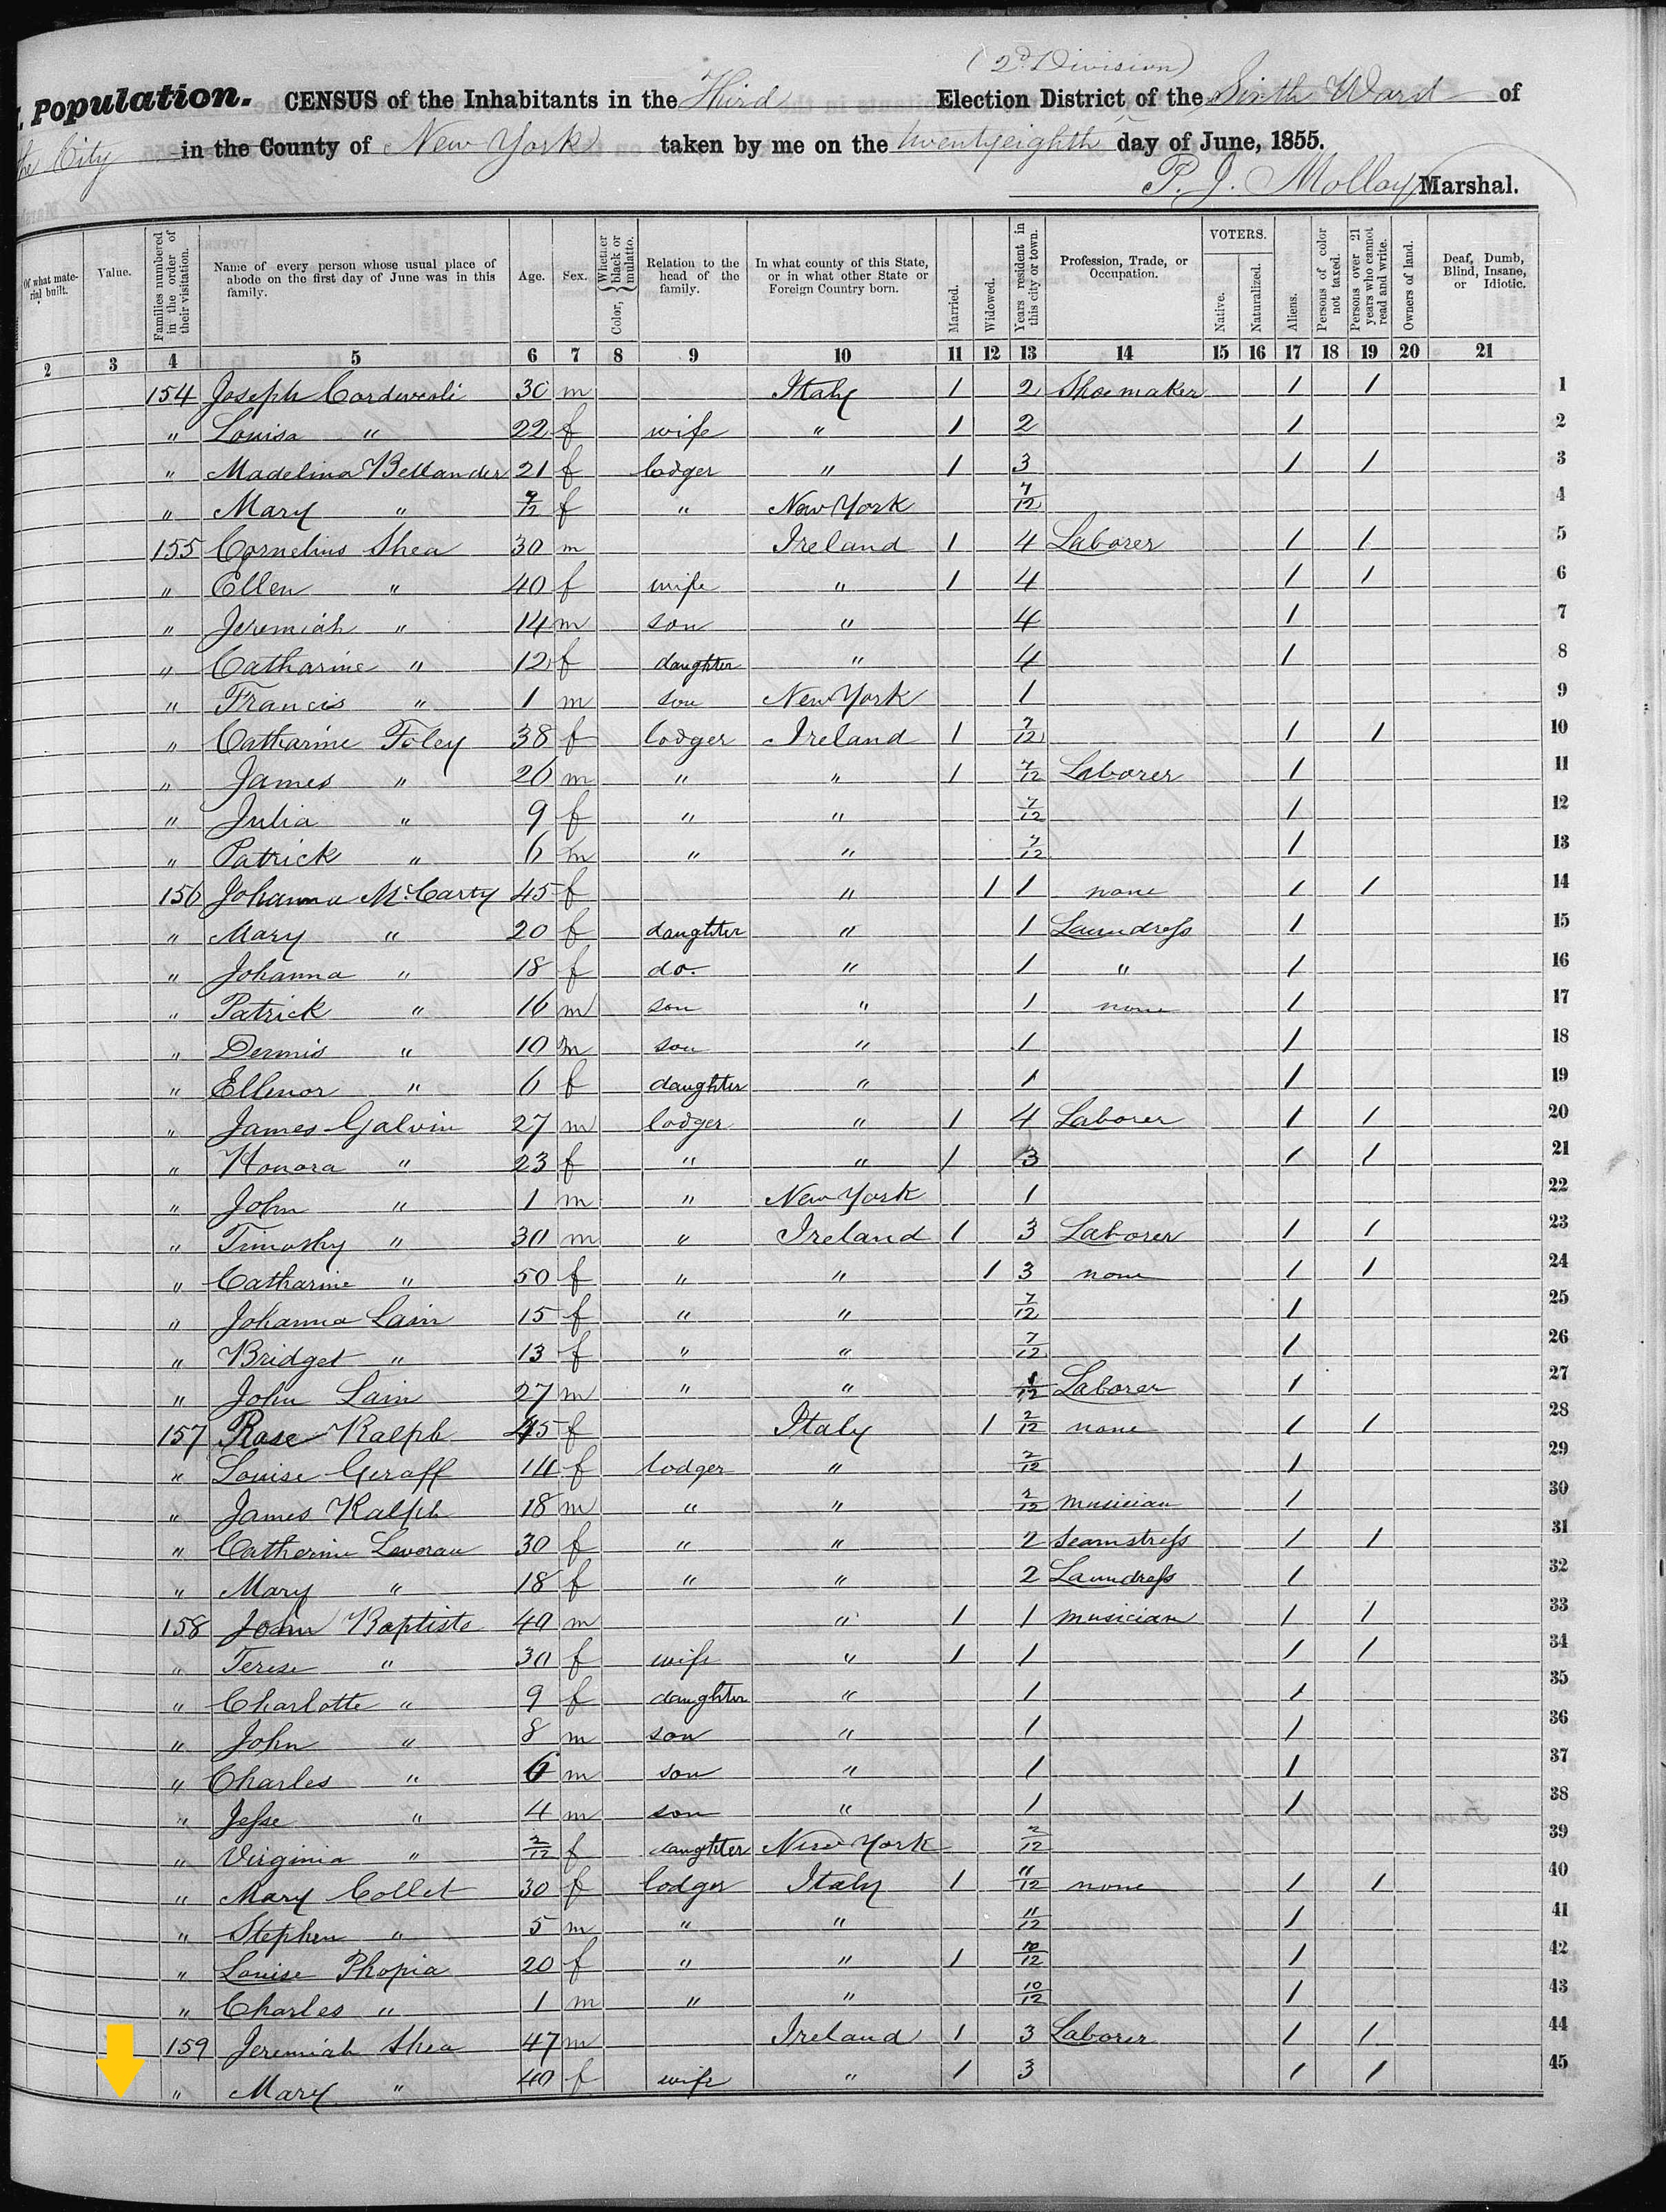 (2d Division)
. Population. CENSUS of the Inhabitants in the Third Election District of the Sixth Ward of
the City in the County of New York taken by me on the twentyeighth day of June, 1855.
P. J. Molloy Marshal.
Of what material built. Value. Families numbered in the order of their visitation. Name of every person whose usual place of abode on the first day of June was in this family. Age. Sex. Color, Whether black or mulatto. Relation to the head of the family. In what county of this State, or in what other State or Foreign Country born. Married. Widowed. Years resident in this city or town. Profession, Trade, or Occupation. VOTERS. Native. Naturalized. Aliens. Persons of color not taxed. Persons over 21 years who cannot read and write. Owners of land. Deaf, Dumb, Blind, Insane, or Idiotic.
2 3 4 5 6 7 8 9 10 11 12 13 14 15 16 17 18 19 20 21
154 Joseph 30 m Italy 1 2 Shoemaker 1 1 1
" Louisa " 22 f wife " 1 2 1 2
" Madelina Bellander 21 f lodger " 1 3 1 1 3
" Mary " 7/12 f " New York 7/12 4
155 Cornelius Shea 30 m Ireland 1 4 Laborer 1 1 5
" Ellen " 40 f wife " 1 4 1 1 6
" Jeremiah " 14 m son " 4 1 7
" Catharine " 12 f daughter " 4 1 8
" Francis " 1 m son New York 1 9
" Catharine Foley 38 f lodger Ireland 1 7/12 1 1 10
" James " 26 m " " 1 7/12 Laborer 1 11
" Julia " 9 f " " 7/12 1 12
" Patrick " 6 m " " 7/12 1 13
156 Johanna McCarty 45 f " 1 1 none 1 1 14
" Mary " 20 f daughter " 1 Laundress 1 15
" Johanna " 18 f do. " 1 " 1 16
" Patrick " 16 m son " 1 none 1 17
" Dennis " 10 m son " 1 1 18
" Ellenor " 6 f daughter " 1 1 19
" James Galvin 27 m lodger " 1 4 Laborer 1 1 20
" Honora " 23 f " " 1 3 1 1 21
" John " 1 m " New York 1 22
" Timothy " 30 m " Ireland 1 3 Laborer 1 1 23
" Catharine " 50 f " " 1 3 none 1 1 24
" Johanna Lain 15 f " " 7/12 1 25
" Bridget " 13 f " " 7/12 1 26
" John Lain 27 m " " 1/12 Laborer 1 27
157 Rose Ralph 45 f Italy 1 2/12 none 1 1 28
" Louise Geraff 14 f lodger " 2/12 1 29
" James Ralph 18 m " " 2/12 musician 1 30
" Catherine Leverau 30 f " " 2 seamstress 1 1 31
" Mary " 18 f " " 2 Laundress 1 32
158 John Baptiste 40 m " 1 1 musician 1 1 33
" Terese " 30 f wife " 1 1 1 1 34
" Charlotte " 9 f daughter " 1 1 35
" John " 8 m son " 1 1 36
" Charles " 6 m son " 1 1 37
" Jesse " 4 m son " 1 1 38
" Virginia " 2/12 f daughter New York 2/12 39
" Mary Collet 30 f lodger Italy 1 11/12 none 1 1 40
" Stephen " 5 m " " 11/12 1 41
" Louise Phopia 20 f " " 1 10/12 1 42
" Charles " 1 m " " 10/12 1 43
159 Jeremiah Shea 47 m Ireland 1 3 Laborer 1 1 44
" Mary " 40 f wife " 1 3 1 1 45